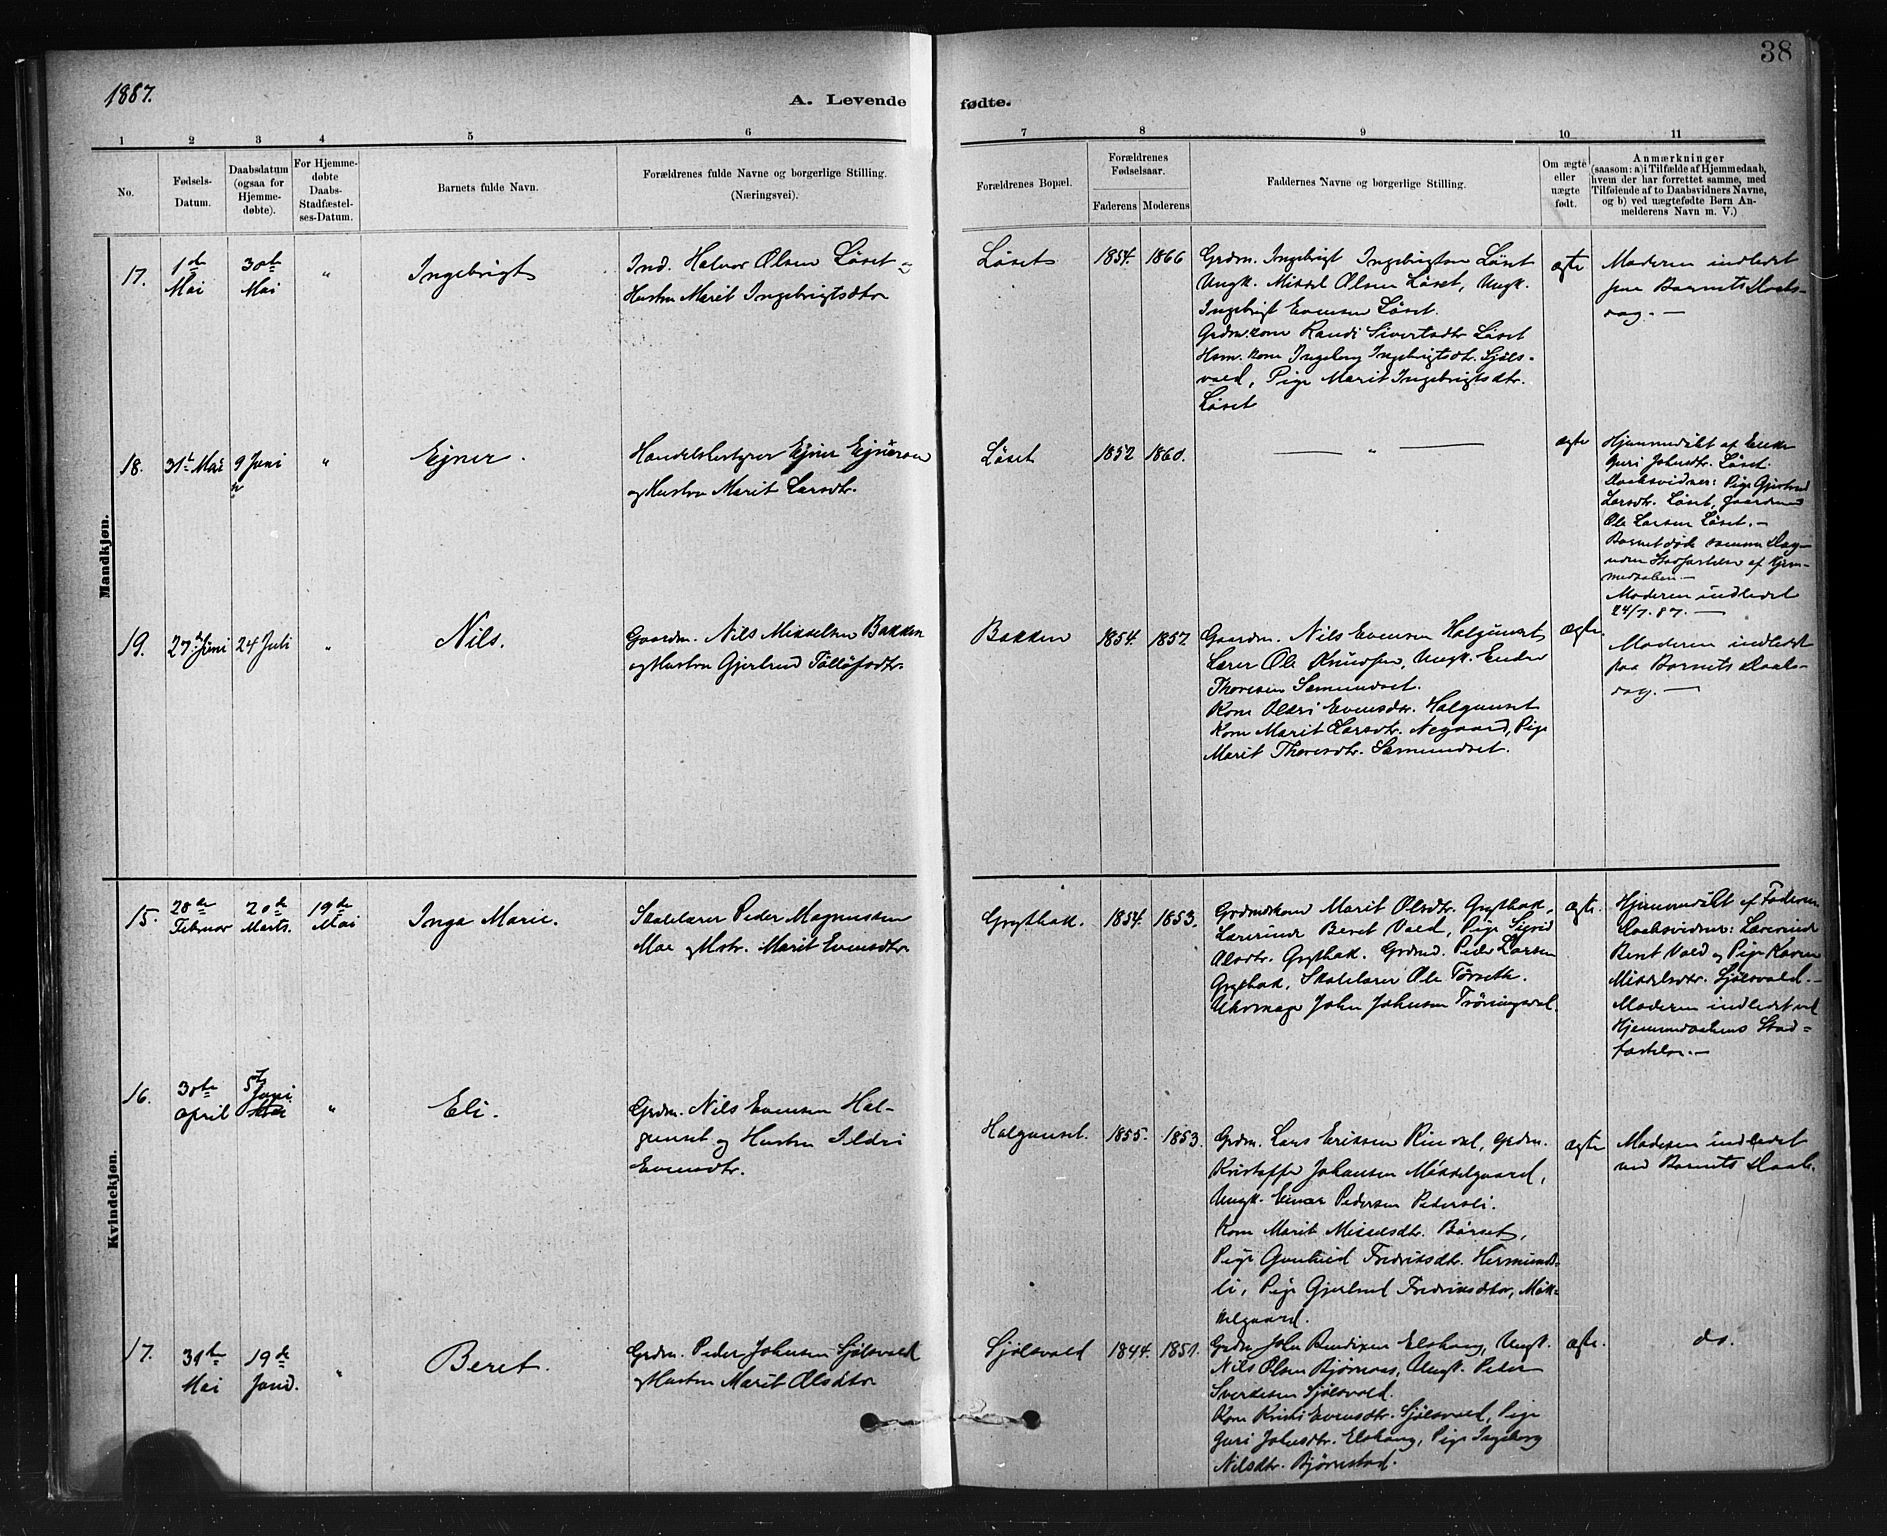 38
1887.
A. Levende
fødte.
1 2 3 4 5 6
7 8 9 10 11
No.
Fødsels-
Datum.
Daabsdatum
(ogsaa for
Hjemme-
døbte).
For Hjemme-
døbte
Daabs-
Stadfæstel-
ses-Datum.
Barnets fulde Navn.
Forældrenes fulde Navne og borgerlige Stilling.
(Næringsvei).
Forældrenes Bopæl.
Forældrenes
Fødselsaar.
Faderens Moderens
Faddernes Navne og borgerlige Stilling.
Om ægte
eller
uægte
født.
Anmærkninger
(saasom: a) i Tilfælde af Hjemmedaab,
hvem der har forrettet samme, med
Tilføiende af to Daabsvidners Navne,
og b) ved uægtefødte Børn An-
melderens Navn m. V.)
Mandkjøn.
17.
1ste
Mai
30te
Mai
"
Ingebrigt
Ind. Halvor Olsen Løset og
Hustru Marit Ingebrigtsdtr
Løset
1854. 1866
Grdm. Ingebrigt Ingebrigtsen Løset
Ungk. Mikkel Olsen Løset, Ungk.
Ingebrigt Evensen Løset.
Grdm.kone Randi Sivertsdtr Løset
Hsm. kone Ingeborg Ingebrigtsdtr. Sjøls-
vold, Pige Marit Ingebrigtsdtr.
Løset
ægte
Moderen indledet
paa Barnets Daabs-
dag. —
18.
31te Mai
9 Juni
"
Ejner.
Handelsbestyrer Ejner Ejnersen
og Hustru Marit Larsdtr.
Løset
1852 1860.
— " —
ægte
Hjemmedøbt af Enke
Guri Johnsdtr. Løset.
Daabsvidner: Pige Gjertrud
Larsdtr. Løset, Gaardmd
Ole Larsen Løset. —
Barnet døde samme Dag
uden Stadfæstelse af Hjem-
medaaben —
Moderen indledet
24/7. 87. —
19.
27de Juni
24 Juli
"
Nils.
Gaardm. Nils Mikkelsen Bakken
og Hustru Gjertrud Tølløfsdtr.
Bakken
1854. 1857
Gaardm. Nils Evensen Halgunset
Lærer Ole Knudsen, Ungk. Ender
Thoresen Samundset.
Kone Ildri Evensdtr. Halgunset
Kone Marit Larsdtr. Negaard, Pige
Marit Thoresdtr. Samundset.
ægte.
Moderen indledet
paa Barnets Daabs-
dag. —
Kvindekjøn.
15.
28de
Februar
20de
Marts.
19de
Mai
Inga Marie.
Skolelærer Peder Magnussen
Moe og Hstr. Marit Evensdtr
Grythak.
1854. 1853.
Grdmdskone Marit Olsdtr. Grythak,
Lærerinde Beret Vold, Pige Sigrid
Olsdtr. Grythak. Grdmd. Peder Larsen
Grythak, Skolelærer Ole Tørseth.
Uhrmager John Johnsen Trøningsdal.
ægte.
Hjemmedøbt af Faderen
Daabsvidner: Lærerinde
Beret Vold og Pige Karen
Mikkelsdtr. Sjølsvold. —
Moderen indledet ved
Hjemmedaabens Stad=
fæstelse. —
16.
30te
April
5te
Juni.
"
Eli.
Grdm. Nils Evensen Hal-
gunset og Hustru Ildri
Evensdtr.
Halgunset.
1855. 1853.
Grdm. Lars Eriksen Rindal, Grdm.
Kristoffer Johansen Mikkelgaard,
Ungk. Einar Pedersen Pedersli.
Kone Marit Mikkelsdtr. Børset,
Pige Gunhild Fredriksdtr. Hermunds-
li, Pige Gjertrud Fredriksdtr, Mik-
kelgaard.
ægte
Moderen indledet
ved Barnets Daab.
17.
31te
Mai
19de
Juni.
"
Beret.
Grdm. Peder Johnsen Sjølsvold
og Hustru Marit Olsdtr
Sjølsvold
1844. 1851.
Grdm John Bendixen Elshaug, Ungk.
Nils Olsen Bjørnaas, Ungk. Peder
Sverkesen Sjølsvold.
Kone Kristi Evensdtr. Sjølsvold, Pige
Guri Johnsdtr. Elshaug, Pige Ingeborg
Nilsdtr. Bjørnstad.
ægte.
do.